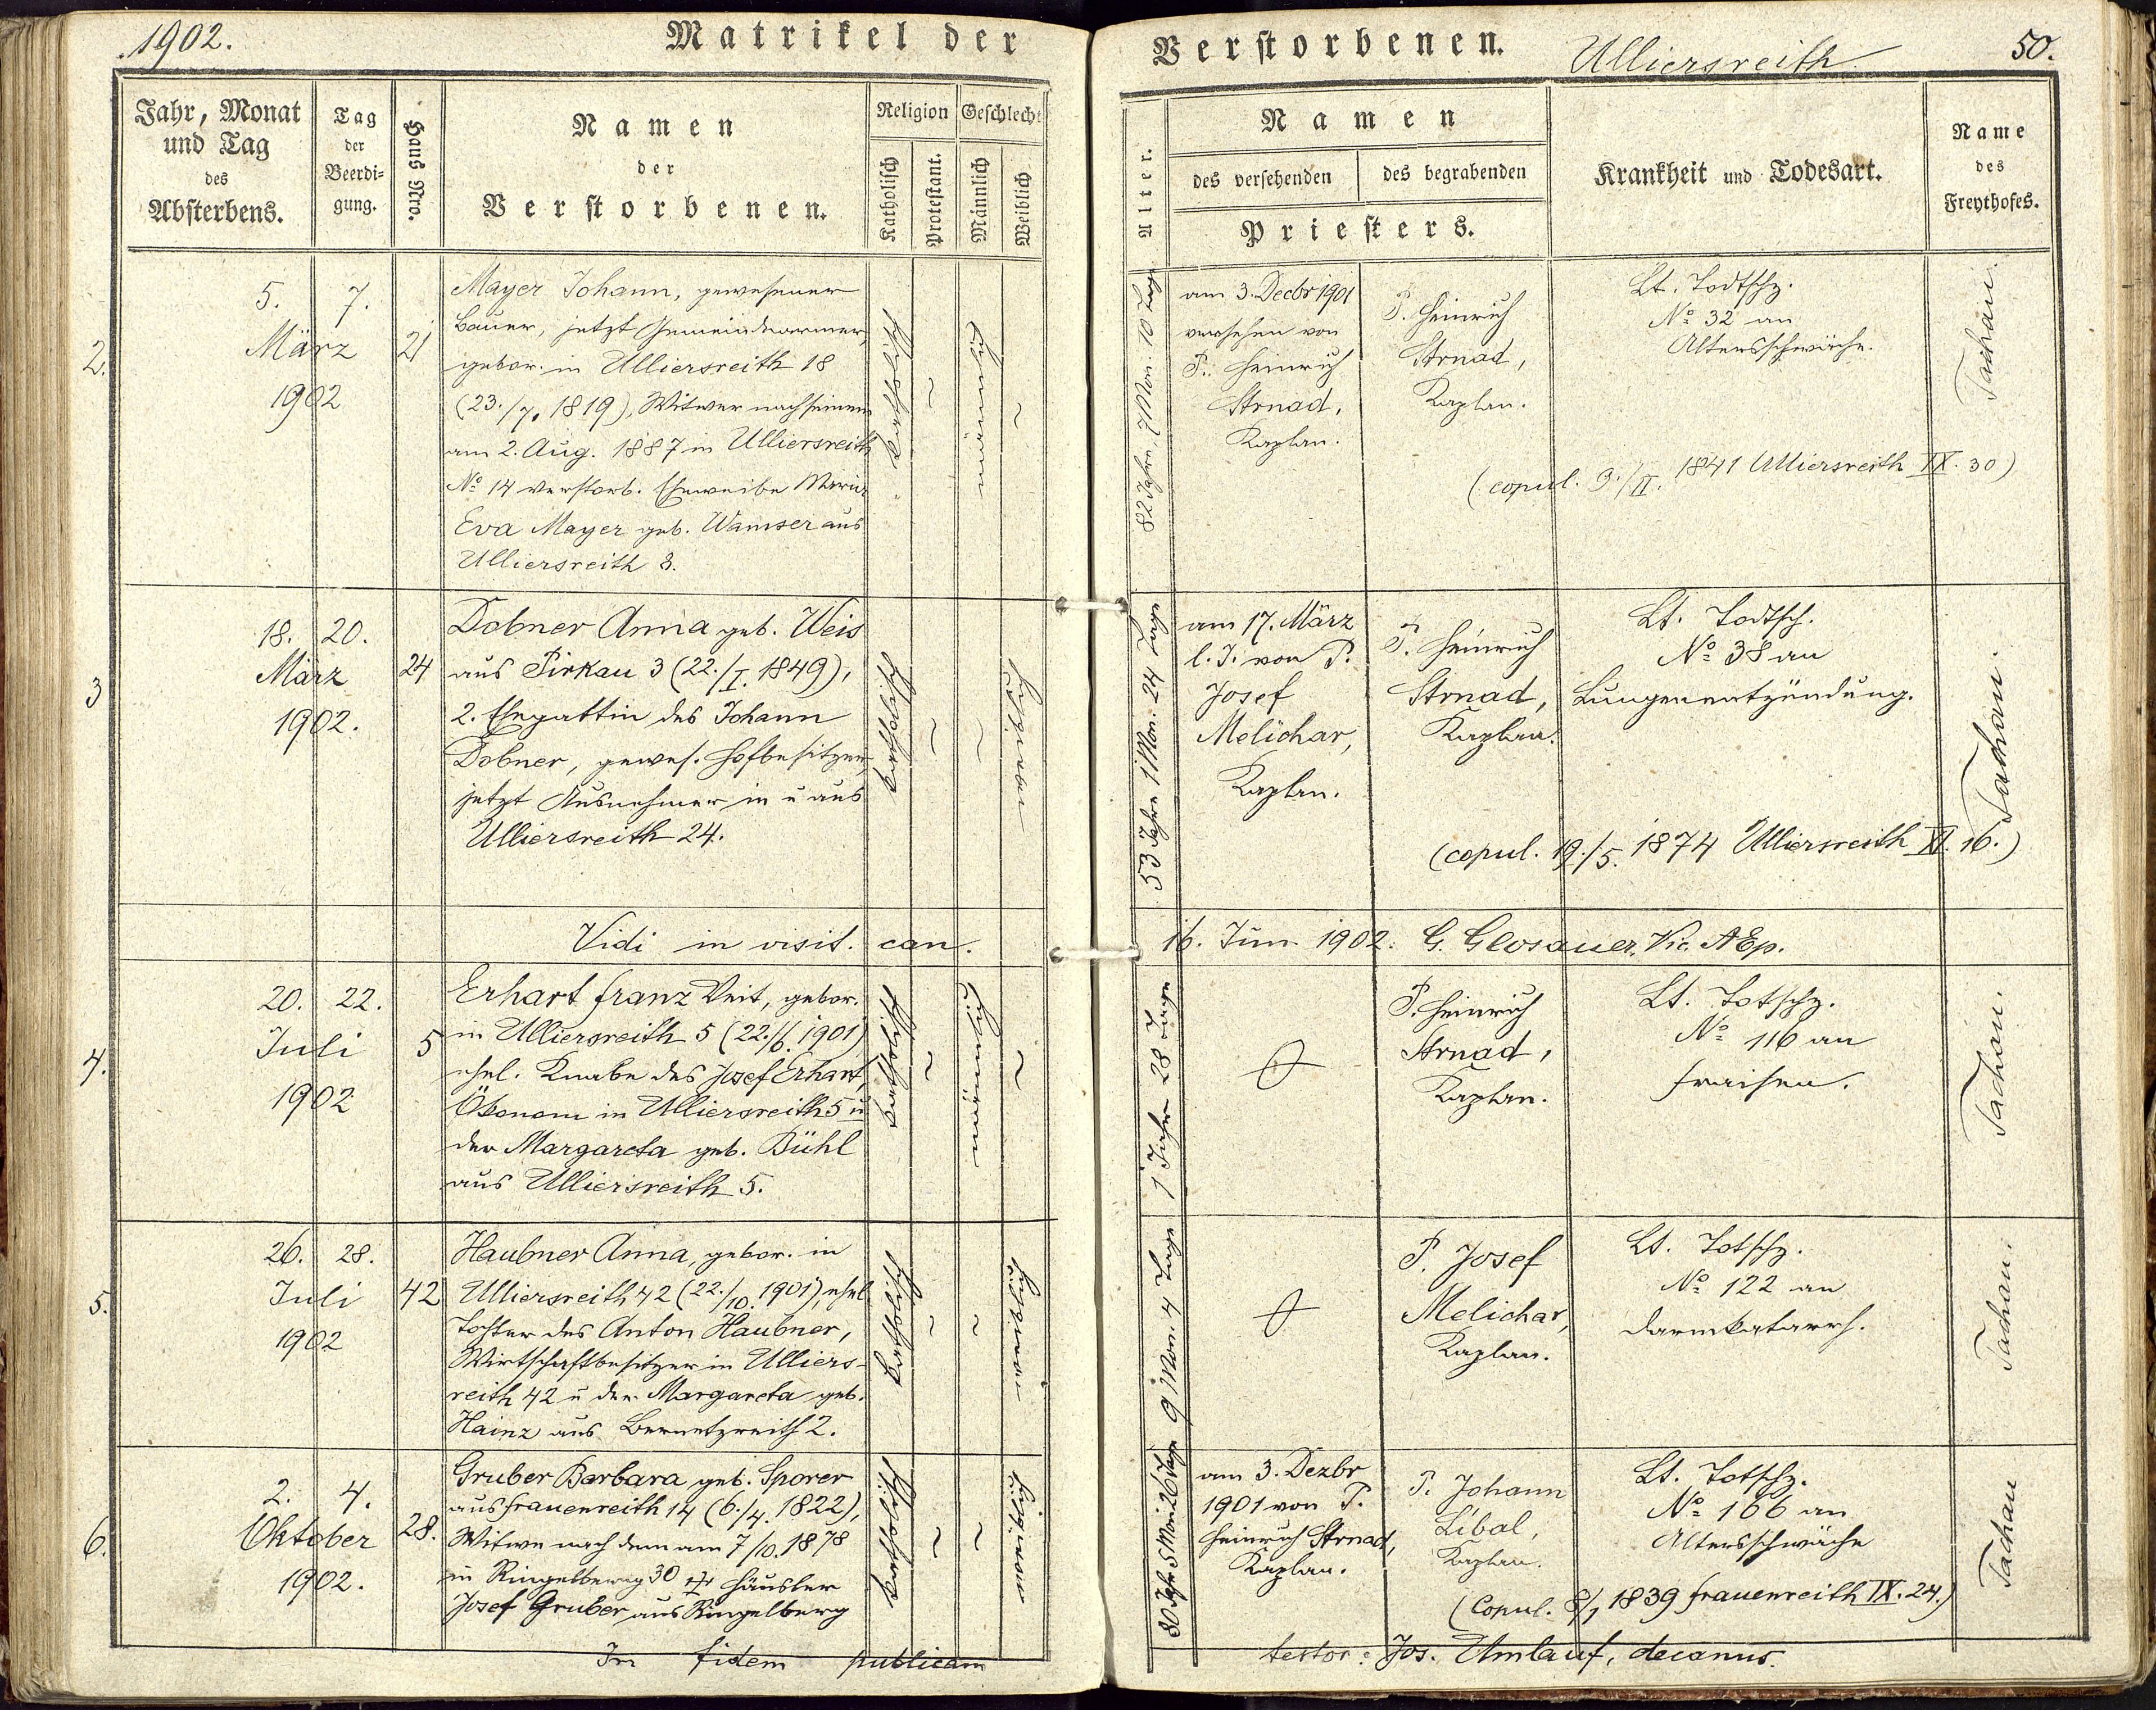 1902.
Matrikel der
Jahr, Monat
und Tag
des
Absterbens.
Tag
der
Beerdi-
gung.
Haus Nro.
Namen
der
Verstorbenen.
Religion
Katholisch
Protestant.
Geschlecht
Männlich
Weiblich
2.
5.
März
1902
7.
21
Mayer Johann, gewesener
Bauer, jetzt Gemeindearmer,
gebor. in Ulliersreith 18
(23./7. 1819), Witwer nach seinem
am 2. Aug. 1887 in Ulliersreith
No 14 verstorb. Eheweibe Maria
Eva Mayer geb. Wamser aus
Ulliersreith 8.
katholisch
~
männlich
~
3
18.
März
1902.
20.
24
Dobner Anna geb. Weis
aus Pirkau 3 (22./I. 1849),
2. Ehegattin des Johann
Dobner, gewes. Hofbesitzer,
jetzt Ausnehmer in u aus
Ulliersreith 24.
katholisch
~
~
Vidi in visit. can.
4.
20.
Juli
1902
22.
5
Erhart Franz Veit, gebor.
in Ulliersreith 5 (22./6. 1901)
ehel. Knabe des Josef Erhart,
Ökonom in Ulliersreith 5 u
der Margareta geb. Bühl
aus Ulliersreith 5.
katholisch
~
männlich
~
5.
26.
Juli
1902
28.
42
Haubner Anna, gebor. in
Ulliersreith 42 (22./10. 1901), ehel
Tochter des Anton Haubner,
Wirtschaftbesitzer in Ulliers-
reith 42 u der Margareta geb.
Hainz aus Bernetzreith 2.
katholisch
~
~
6.
2.
Oktober
1902.
4.
28.
Gruber Barbara geb. Sporer
aus Frauenreith 14 (6./4. 1822),
Witwe nach dem am 7/10. 1878
in Ringelberg 30 † Häusler
Josef Gruber aus Ringelberg
katholisch
~
~
In fidem publicam
Verstorbenen.
Ulliersreith
50.
Alter.
Namen
des versehenden
des begrabenden
Priesters.
Krankheit und Todesart.
Name
des
Freythofes.
82 Jahre, 7 Mon. 10 Tage
am 3. Decbr 1901
versehen von
P. Heinrich
Strnad,
Kaplan.
P. Heinrich
Strnad,
Kaplan.
Lt. Todtschz.
No 32 an
Altersschwäche.
(copul. 9./II. 1841 Ulliersreith IX. 30)
Tachau.
53 Jahre 1 Mon. 24 Tage
am 17. März
l. J. von P.
Josef
Melichar,
Kaplan.
P. Heinrich
Strnad,
Kaplan.
Lt. Todtsch.
No 38 an
Lungenentzündung.
(copul. 19./5. 1874 Ulliersreith XI. 16.)
Tachau.
16. Jun. 1902. G. Glosauer, Vic. AEp.
1 Jahr 28 Tage
P. Heinrich
Strnad,
Kaplan.
Lt. Totschz.
No 116 an
Fraisen.
Tachau.
9 Mon. 4 Tage
P. Josef
Melichar,
Kaplan.
Lt. Totschz.
No 122 an
Darmkatarrh.
Tachau.
80 Jahr 5 Mon. 26 Tage
am 3. Dezbr
1901 von P.
Heinrich Strnad,
Kaplan.
P. Johann
Líbal,
Kaplan.
Lt. Totschz.
No 166 an
Altersschwäche
(Copul. 8/1 1839 Frauenreith IX. 24.)
Tachau
testor: Jos. Umlauf, decanus.